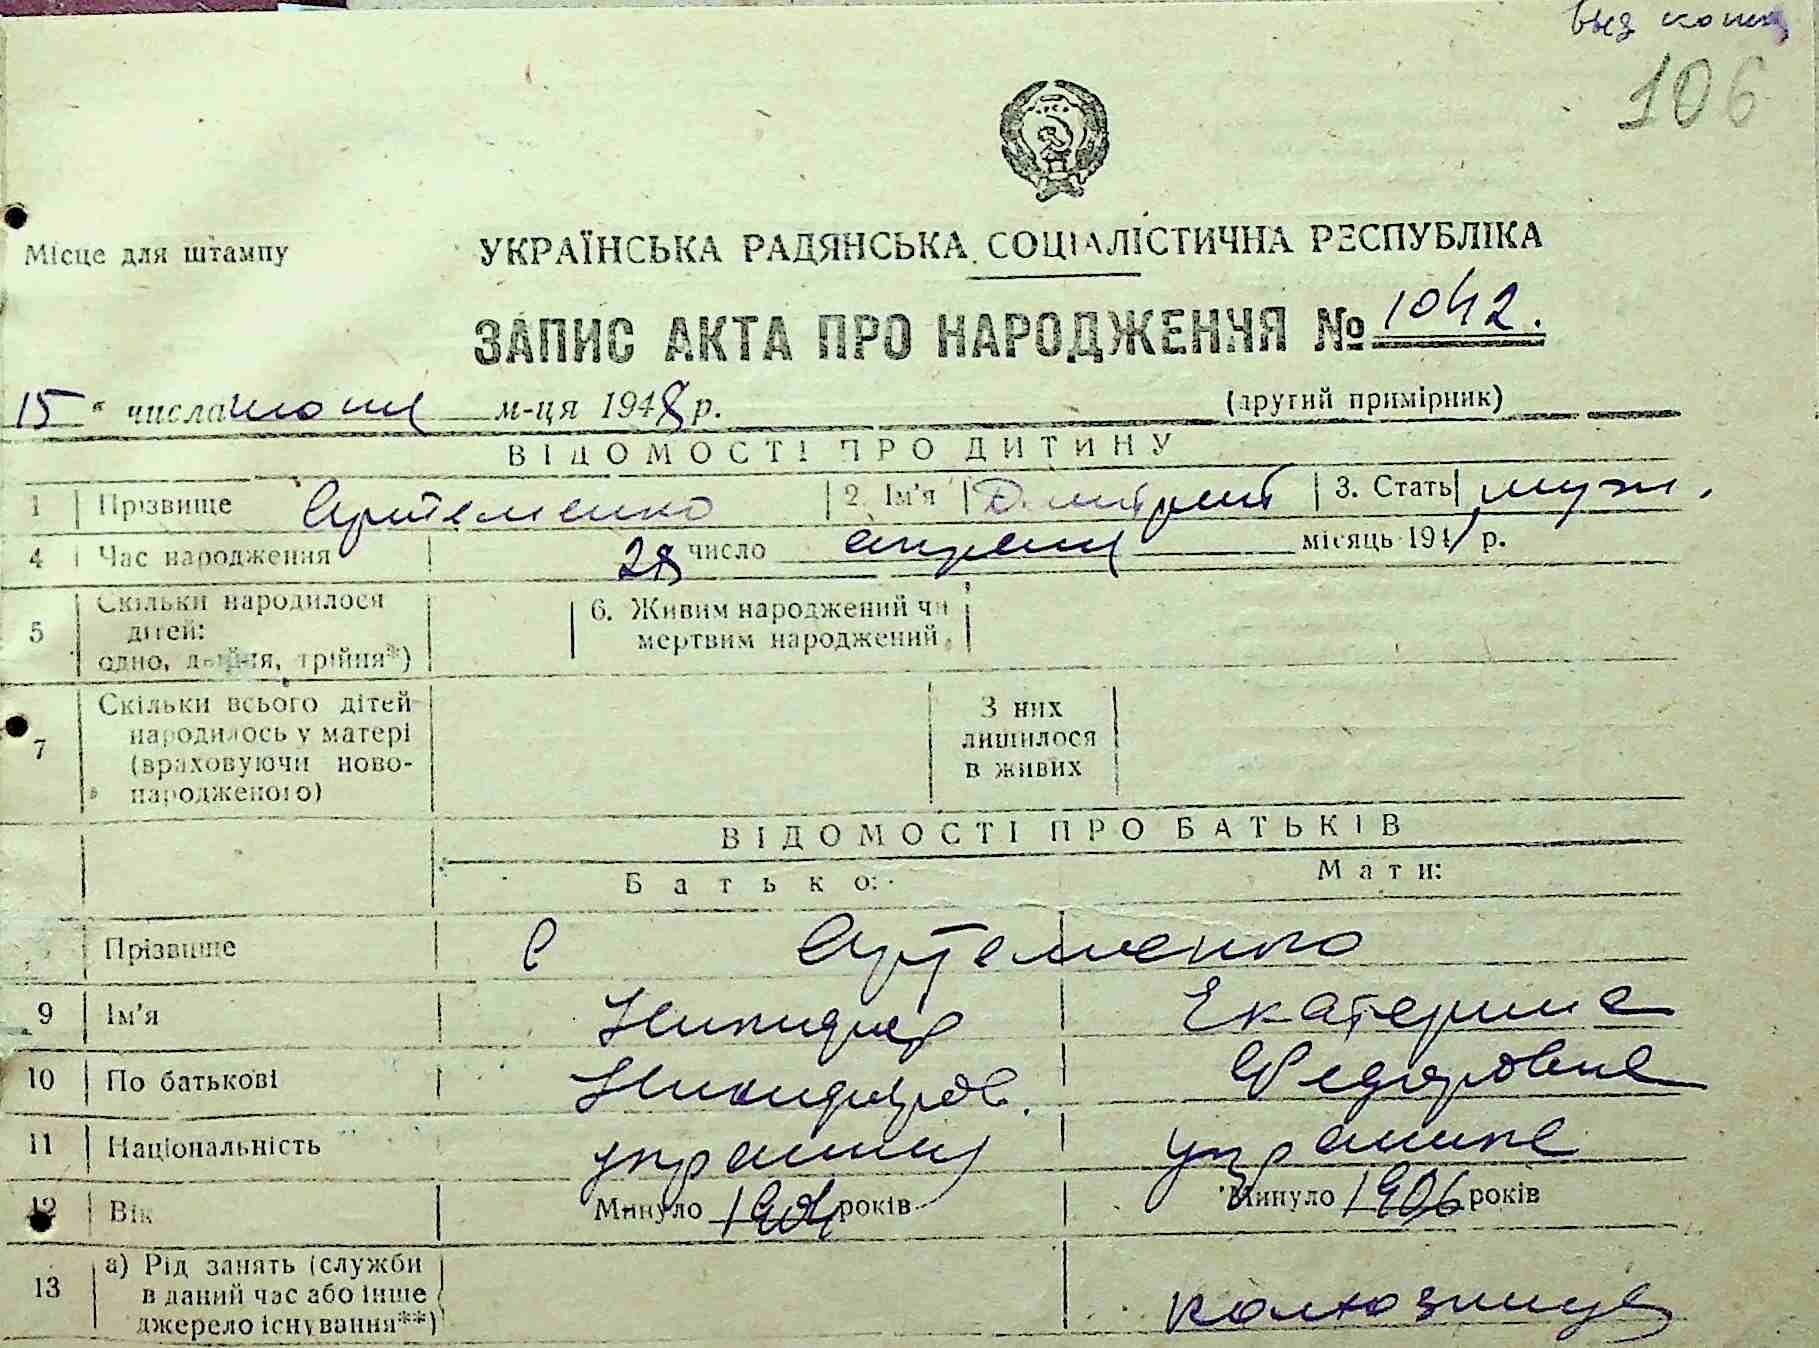 выд копия
106
Місце для штампу
УКРАЇНСЬКА РАДЯНСЬКА СОЦІАЛІСТИЧНА РЕСПУБЛІКА
ЗАПИС АКТА ПРО НАРОДЖЕННЯ № 1042.
15 " числа июня м-ця 1948 р. (другий примірник)
ВІДОМОСТІ ПРО ДИТИНУ
1 Прізвище Артеменко 2. Ім'я Дмитрий 3. Стать муж.
4 Час народження 28 число апреля місяць 1941 р.
5 Скільки народилося дітей: одно, двійня, трійня*) 6. Живим народжений чи мертвим народжений
7 Скільки всього дітей народилось у матері (враховуючи новонародженого) З них лишилося в живих
ВІДОМОСТІ ПРО БАТЬКІВ
Батько: Мати:
Прізвище Артеменко
9 Ім'я Никифор Екатерина
10 По батькові Никифоров. Федоровна
11 Національність украинц украинка
12 Вік Минуло 1904 років Минуло 1906 років
13 а) Рід занять (служби в даний час або інше джерело існування**) колхозница